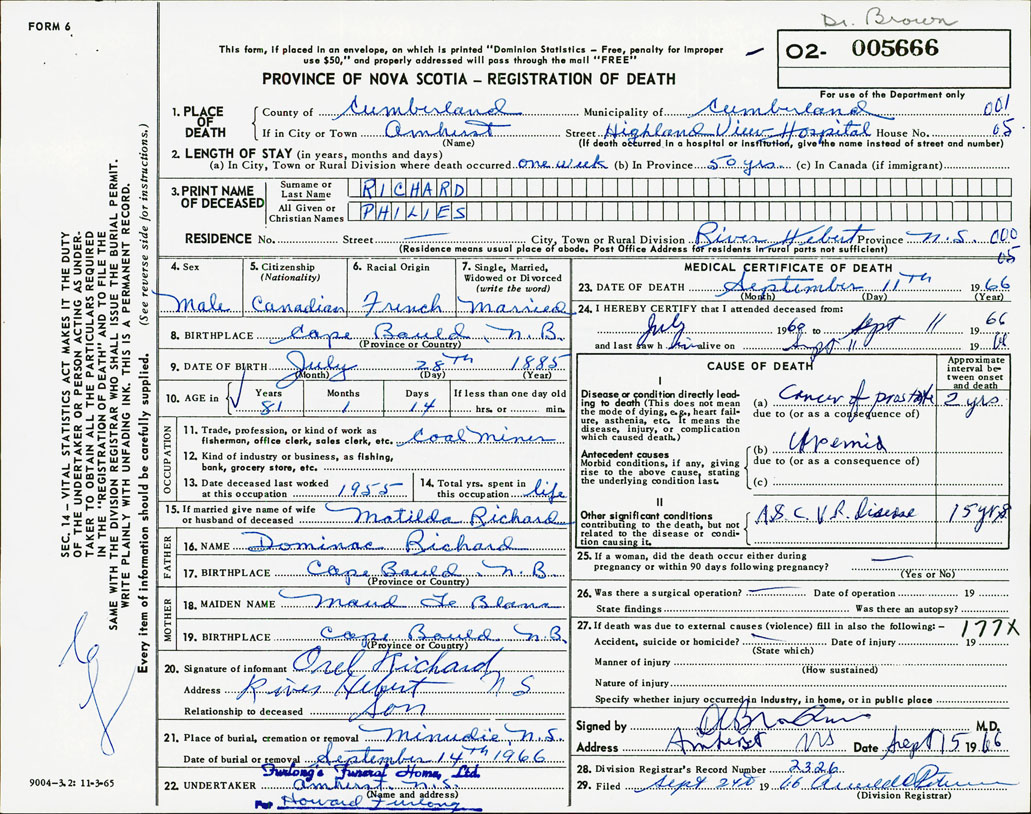 Dr. Brown
FORM 6
This form, if placed in an envelope, on which is printed "Dominion Statistics – Free, penalty for improper
use $50," and properly addressed will pass through the mail "FREE"
02- 005666
PROVINCE OF NOVA SCOTIA – REGISTRATION OF DEATH
For use of the Department only
SEC. 14 – VITAL STATISTICS ACT MAKES IT THE DUTY
OF THE UNDERTAKER OR PERSON ACTING AS UNDER-
TAKER TO OBTAIN ALL THE PARTICULARS REQUIRED
IN THE "REGISTRATION OF DEATH" AND TO FILE THE
SAME WITH THE DIVISION REGISTRAR WHO SHALL ISSUE THE BURIAL PERMIT.
WRITE PLAINLY WITH UNFADING INK. THIS IS A PERMANENT RECORD.
Every item of information should be carefully supplied. (See reverse side for instructions.)
1. PLACE OF DEATH County of Cumberland Municipality of Cumberland 001
If in City or Town Amherst Street Highland View Hospital House No. 05
(Name) (If death occurred in a hospital or institution, give the name instead of street and number)
2. LENGTH OF STAY (in years, months and days)
(a) In City, Town or Rural Division where death occurred one week (b) In Province 50 yrs (c) In Canada (if immigrant)
3. PRINT NAME OF DECEASED Surname or Last Name RICHARD
All Given or Christian Names PHILIES
RESIDENCE No. Street City, Town or Rural Division River Hebert Province N.S. 000
(Residence means usual place of abode. Post Office Address for residents in rural parts not sufficient) 05
4. Sex Male
5. Citizenship (Nationality) Canadian
6. Racial Origin French
7. Single, Married, Widowed or Divorced (write the word) Married
8. BIRTHPLACE Cape Bauld, N.B.
(Province or Country)
9. DATE OF BIRTH July 28TH 1885
(Month) (Day) (Year)
10. AGE in Years 81 Months 1 Days 14 If less than one day old hrs. or min.
OCCUPATION
11. Trade, profession, or kind of work as fisherman, office clerk, sales clerk, etc. Coal Miner
12. Kind of industry or business, as fishing, bank, grocery store, etc.
13. Date deceased last worked at this occupation 1955
14. Total yrs. spent in this occupation life
15. If married give name of wife or husband of deceased Matilda Richard
FATHER
16. NAME Dominac Richard
17. BIRTHPLACE Cape Bauld, N.B.
(Province or Country)
MOTHER
18. MAIDEN NAME Maud Le Blanc
19. BIRTHPLACE Cape Bauld N.B.
(Province or Country)
20. Signature of informant Richard
Address River Hebert N S
Relationship to deceased Son
21. Place of burial, cremation or removal Minudie, N.S.
Date of burial or removal September 14TH 1966
Furlong's Funeral Home, Ltd.
22. UNDERTAKER Amherst, N.S.
(Name and address)
Per Howard Furlong
9004-3.2: 11-3-65
MEDICAL CERTIFICATE OF DEATH
23. DATE OF DEATH September 11TH 1966
(Month) (Day) (Year)
24. I HEREBY CERTIFY that I attended deceased from:
July 1960 to Sept 11 1966
and last saw him alive on Sept 11 1966
CAUSE OF DEATH
Approximate interval between onset and death
I
Disease or condition directly leading to death (This does not mean the mode of dying, e.g., heart failure, asthenia, etc. It means the disease, injury, or complication which caused death.)
(a) Cancer of prostate 2 yrs
due to (or as a consequence of)
Antecedent causes
Morbid conditions, if any, giving rise to the above cause, stating the underlying condition last.
(b) Uremia
due to (or as a consequence of)
(c)
II
Other significant conditions contributing to the death, but not related to the disease or condition causing it.
A.S.C.V.R. Disease 15 yrs
25. If a woman, did the death occur either during pregnancy or within 90 days following pregnancy?
(Yes or No)
26. Was there a surgical operation? Date of operation 19
State findings Was there an autopsy?
27. If death was due to external causes (violence) fill in also the following: – 177X
Accident, suicide or homicide? Date of injury 19
(State which)
Manner of injury
(How sustained)
Nature of injury
Specify whether injury occurred in industry, in home, or in public place
Signed by M.D.
Address Amherst NS Date Sept 15 1966
28. Division Registrar's Record Number 2326
29. Filed Sept 19 66
(Division Registrar)